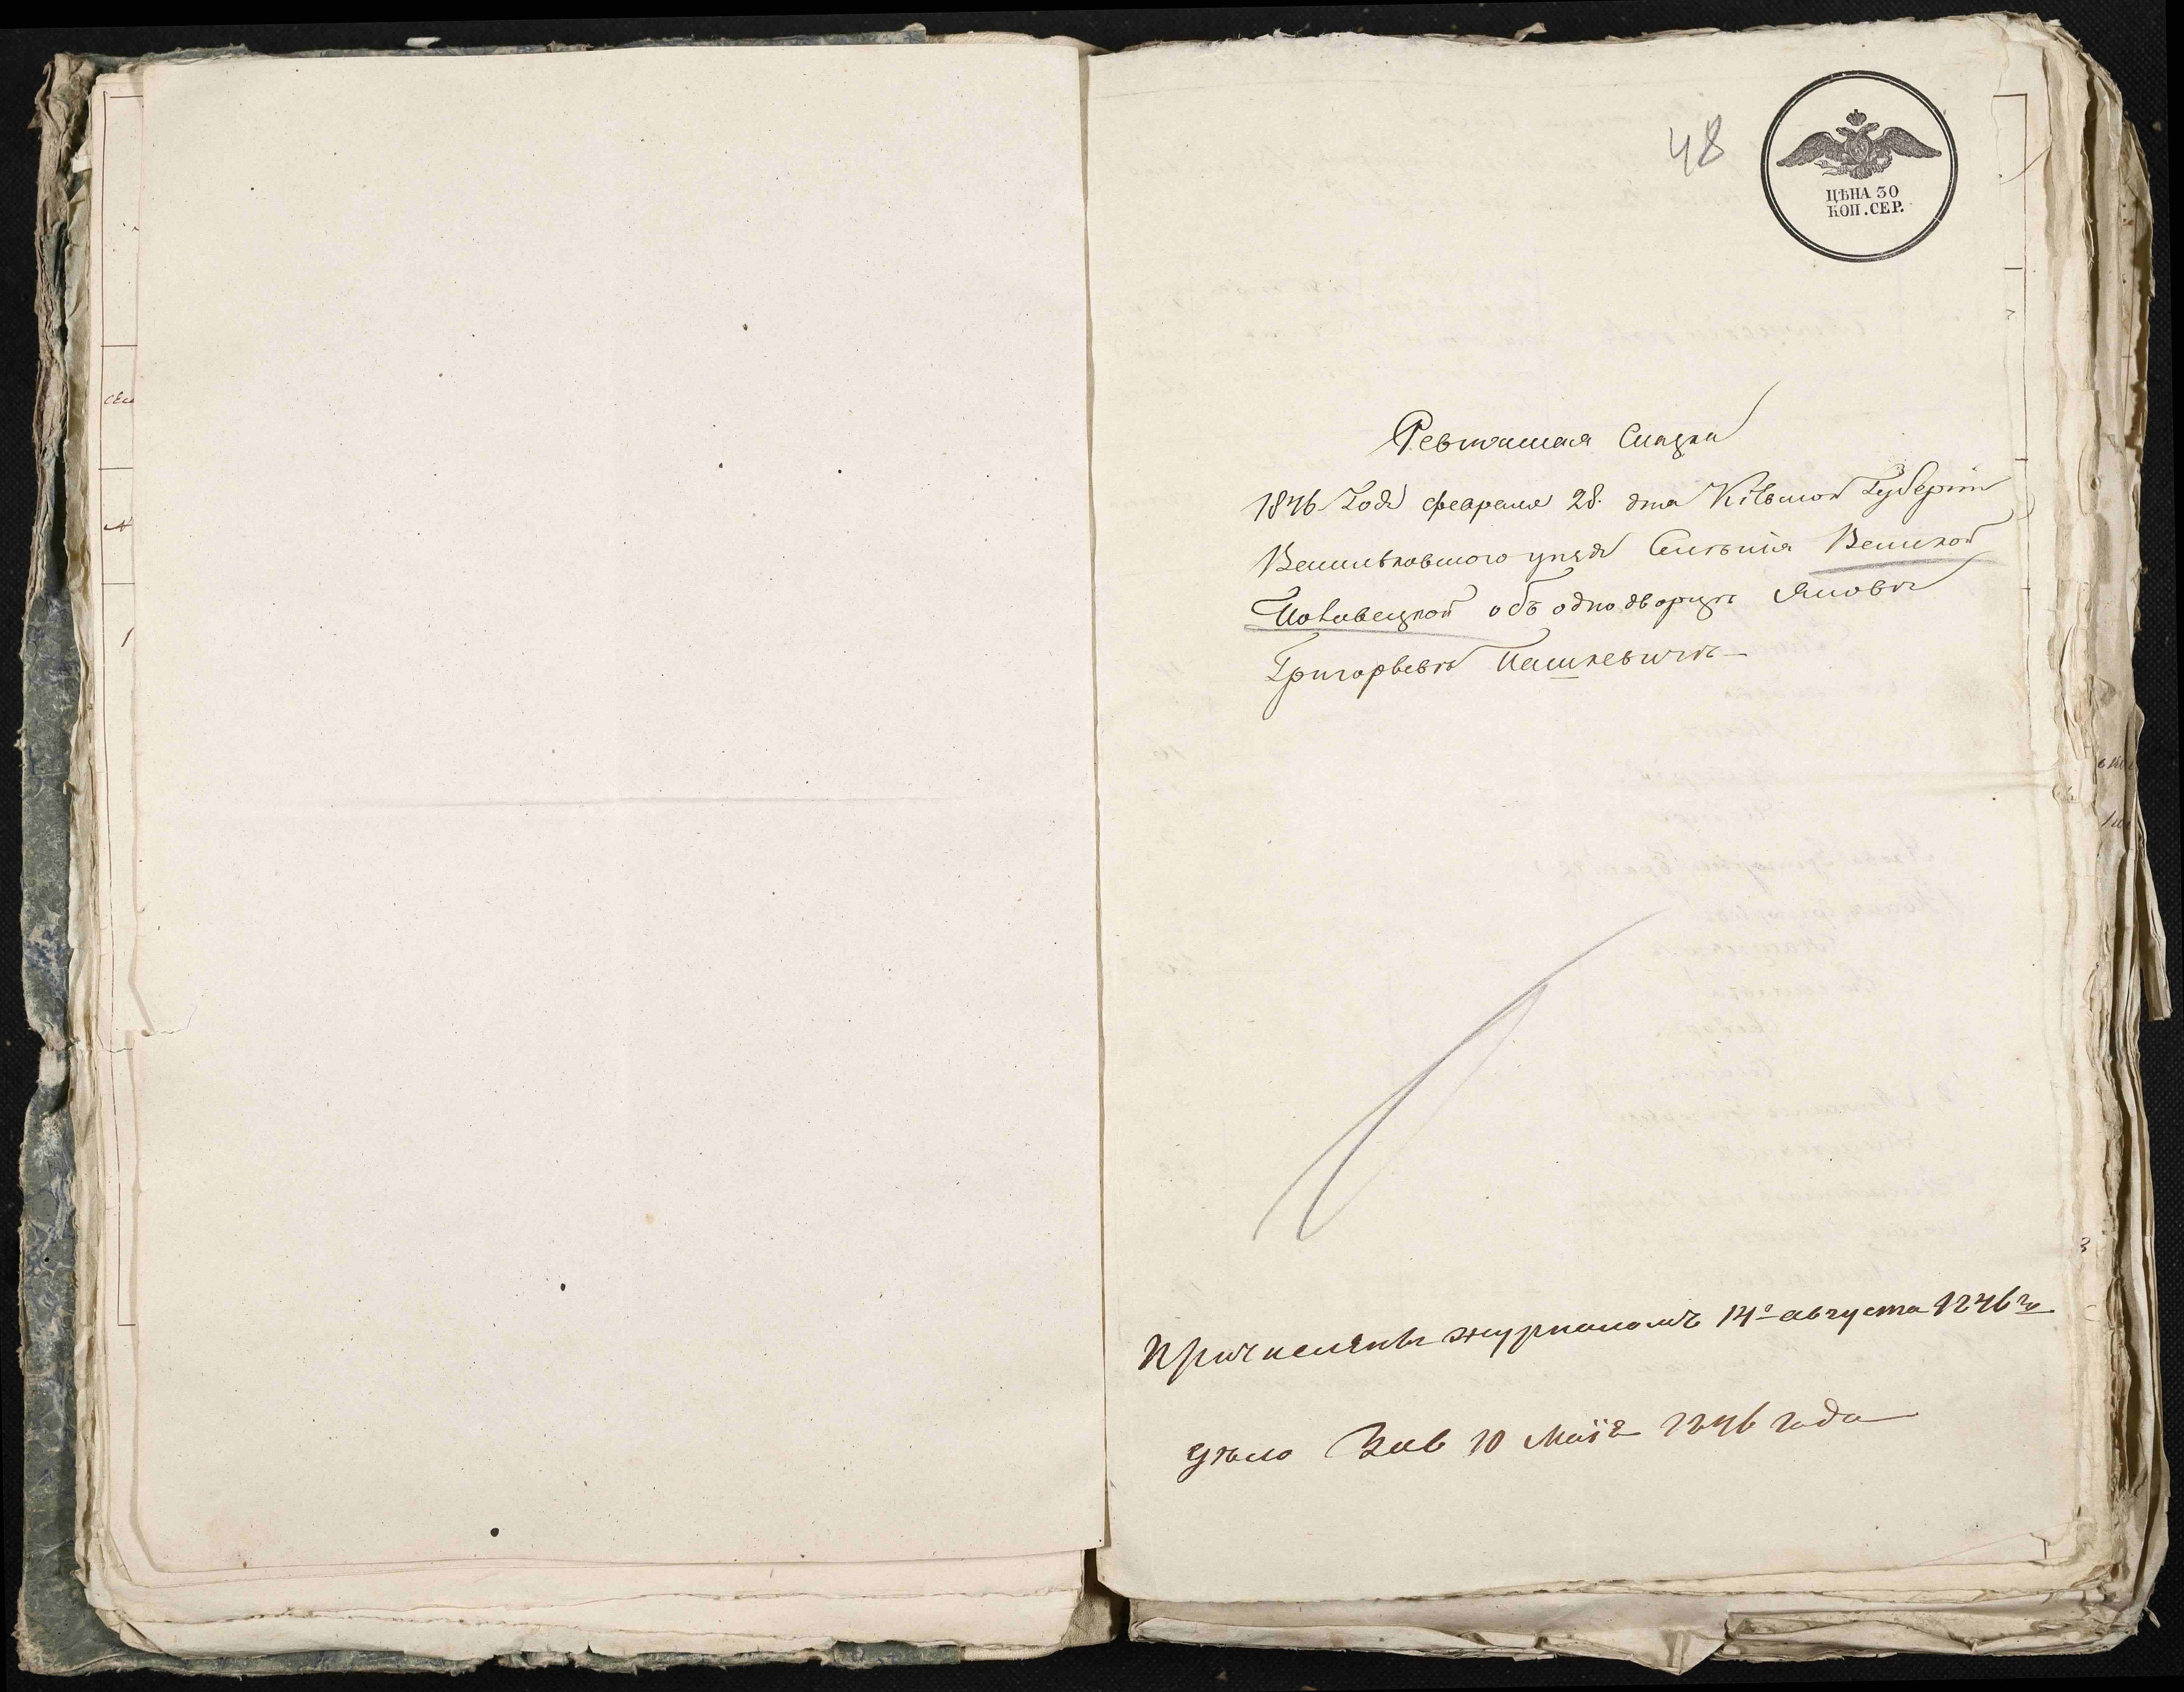 48
ЦѢНА 30
КОП. СЕР.
Ревизская Сказка
1846 Года февраля 28. дня Кіевской Губерніи
Васильковского уѣзда Селенія Великой
Половецкой объ однодворцѣ Яковѣ
Григорьевѣ Пашкевичѣ
Причислены журналомъ 14º августа 1846 го
дѣло 10 Маія 1846 года